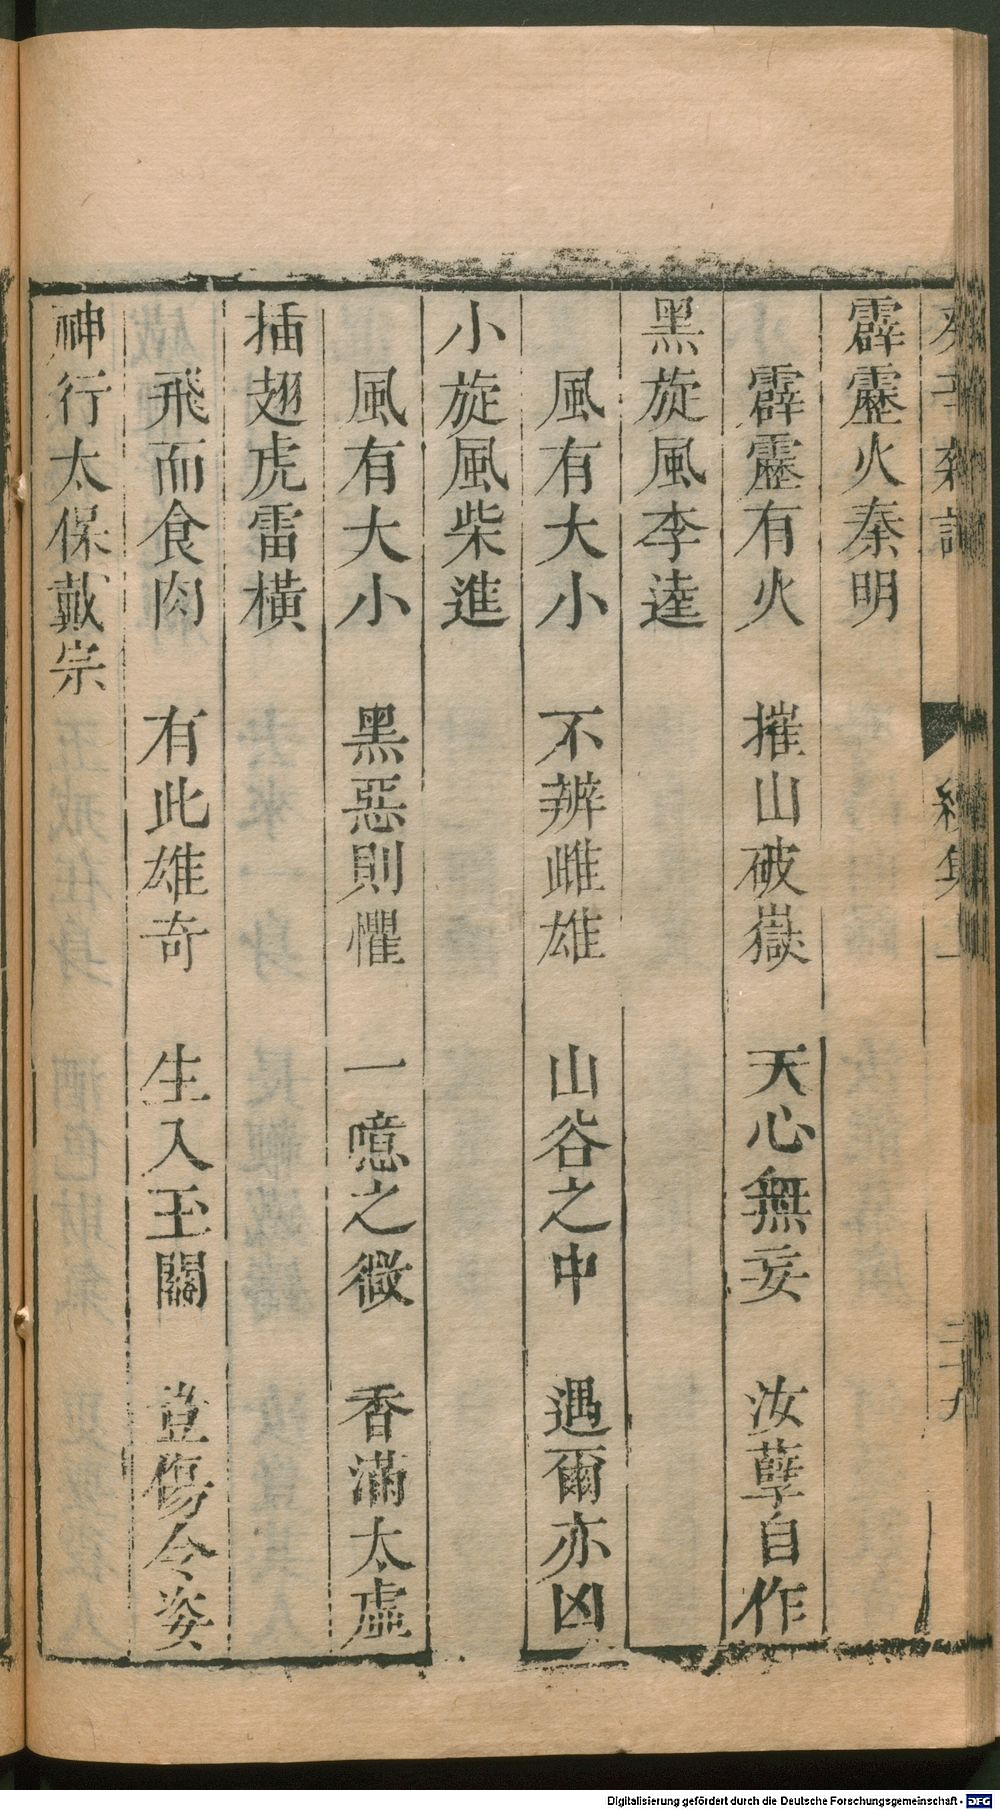 癸辛雜識 續集上 二十九
霹靂火秦明
霹靂有火 摧山破嶽 天心無妄 汝孽自作
黑旋風李逵
風有大小 不辨雌雄 山谷之中 遇爾亦凶
小旋風柴進
風有大小 黑惡則懼 一噫之微 香滿太虛
插翅虎雷橫
飛而食肉 有此雄奇 生入玉關 豈傷令姿
神行太保戴宗
Digitalisierung gefördert durch die Deutsche Forschungsgemeinschaft - DFG